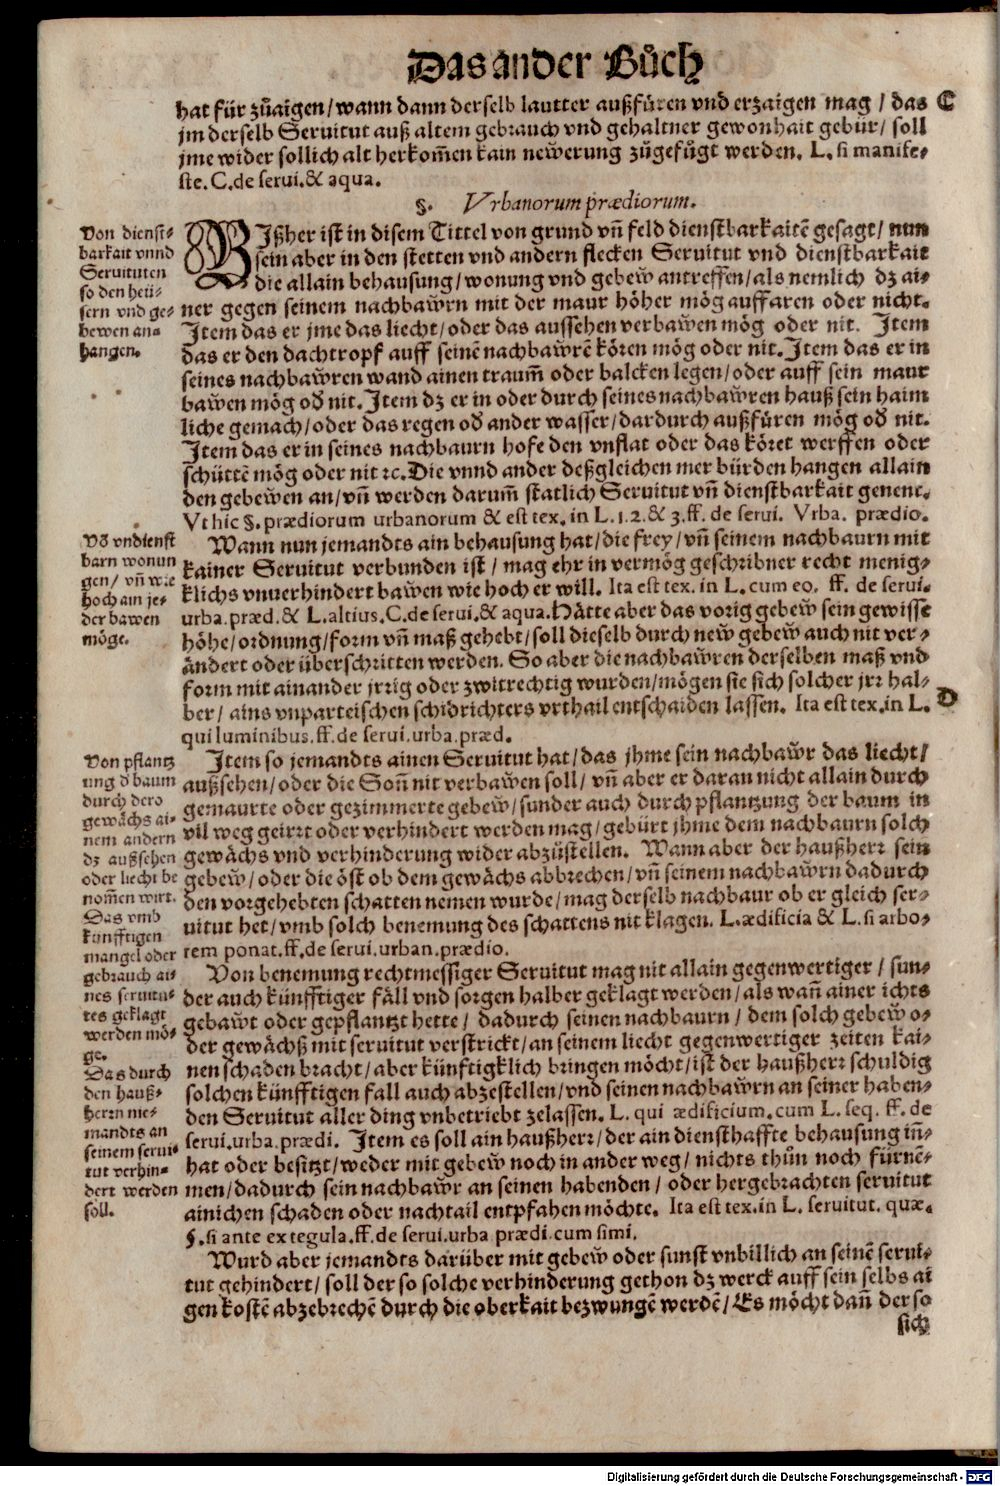 Das ander Bůch
hat für zůaigen/ wann dann derselb lautter außfüren vnd erzaigen mag/ das C
jm derselb Seruitut auß altem gebrauch vnd gehaltner gewonhait gebür/ soll
jme wider sollich alt herkom̃en kain newerung zůgefůgt werden. L. si manife-
ste. C. de serui. & aqua.
§. Vrbanorum prædiorum.
Von dienst-
barkait vnnd
Seruituten
so den heü-
sern vnd ge-
bewen an-
hangen.
BIßher ist in disem Tittel von grund vñ feld dienstbarkaitē gesagt/ nun
sein aber in den stetten vnd andern flecken Seruitut vnd dienstbarkait
die allain behausung/ wonung vnd gebew antreffen/ als nemlich dz ai-
ner gegen seinem nachbawrn mit der maur höher mög auffaren oder nicht.
Item das er jme das liecht/ oder das aussehen verbawen mög oder nit. Item
das er den dachtropf auff seinē nachbawrē kören mög oder nit. Item das er in
seines nachbawren wand ainen traum̃ oder balcken legen/ oder auff sein maur
bawen mög oð nit. Item dz er in oder durch seines nachbawren hauß sein haim
liche gemach/ oder das regen oð ander wasser/ dardurch außfüren mög oð nit.
Item das er in seines nachbaurn hofe den vnflat oder das köret werffen oder
schüttē mög oder nit ꝛc. Die vnnd ander deßgleichen mer bürden hangen allain
den gebewen an/ vñ werden darum̃ statlich Seruitut vñ dienstbarkait genent.
Vt hic §. prædiorum urbanorum & est tex. in L. 1. 2. & 3. ff. de serui. Vrba. prædio.
Võ vndienst
barn wonun
gen/ vñ wie
hoch ain je-
der bawen
möge.
Wann nun jemandts ain behausung hat/ die frey/ vñ seinem nachbaurn mit
kainer Seruitut verbunden ist/ mag ehr in vermög geschribner recht menig-
klichs vnuerhindert bawen wie hoch er will. Ita est tex. in L. cum eo. ff. de serui.
urba. præd. & L. altius. C. de serui. & aqua. Hätte aber das vorig gebew sein gewisse
höhe/ ordnung/ form vñ maß gehebt/ soll dieselb durch new gebew auch nit ver-
ändert oder überschritten werden. So aber die nachbawren derselben maß vnd
form mit ainander jrrig oder zwitrechtig wurden/ mögen sie sich solcher jrr hal- D
ber/ ains vnparteischen schidrichters vrthail entschaiden lassen. Ita est tex. in L.
qui luminibus. ff. de serui. urba. præd.
Von pflantz
ung ð baum
durch dero
gewächs ai-
nem andern
dz außsehen
oder liecht be
nom̃en wirt.
Item so jemandts ainen Seruitut hat/ das jhme sein nachbawr das liecht/
außsehen/ oder die Soñ nit verbawen soll/ vñ aber er daran nicht allain durch
gemaurte oder gezimmerte gebew/ sunder auch durch pflantzung der baum in
vil weg geirrt oder verhindert werden mag/ gebürt jhme dem nachbaurn solch
gewächs vnd verhinderung wider abzůstellen. Wann aber der haußherr sein
gebew/ oder die öst ob dem gewächs abbrechen/ vñ seinem nachbawrn dadurch
den vorgehebten schatten nemen wurde/ mag derselb nachbaur ob er gleich ser-
uitut het/ vmb solch benemung des schattens nit klagen. L. ædificia & L. si arbo-
rem ponat. ff. de serui. urban. prædio.
Das vmb
künfftigen
mangel oder
gebrauch ai-
nes seruitu-
tes geklagt
werden mö-
ge.
Von benemung rechtmessiger Seruitut mag nit allain gegenwertiger/ sun-
der auch künfftiger fäll vnd sorgen halber geklagt werden/ als wañ ainer ichts
gebawt oder gepflantzt hette/ dadurch seinen nachbaurn/ dem solch gebew o-
der gewächß mit seruitut verstrickt/ an seinem liecht gegenwertiger zeiten kai-
nen schaden bracht/ aber künftigklich bringen möcht/ ist der haußherr schuldig
solchen künfftigen fall auch abzestellen/ vnd seinen nachbawrn an seiner haben-
den Seruitut aller ding vnbetriebt zelassen. L. qui ædificium. cum L. seq. ff. de
serui. urba. prædi. Item es soll ain haußherr/ der ain diensthaffte behausung iñ-
hat oder besitzt/ weder mit gebew noch in ander weg/ nichts thůn noch fürnē-
men/ dadurch sein nachbawr an seinen habenden/ oder hergebrachten seruitut
ainichen schaden oder nachtail entpfahen möchte. Ita est tex. in L. seruitut. quæ.
§. si ante ex tegula. ff. de serui. urba prædi. cum simi.
Das durch
den hauß-
herrn nie-
mandts an
seinem serui-
tut verhin-
dert werden
soll.
Wurd aber jemandts darüber mit gebew oder sunst vnbillich an seinē serui-
tut gehindert/ soll der so solche verhinderung gethon dz werck auff sein selbs ai
gen kostē abzebrechē durch die oberkait bezwungē werdē/ Es möcht dañ der so
sich
Digitalisierung gefördert durch die Deutsche Forschungsgemeinschaft - DFG